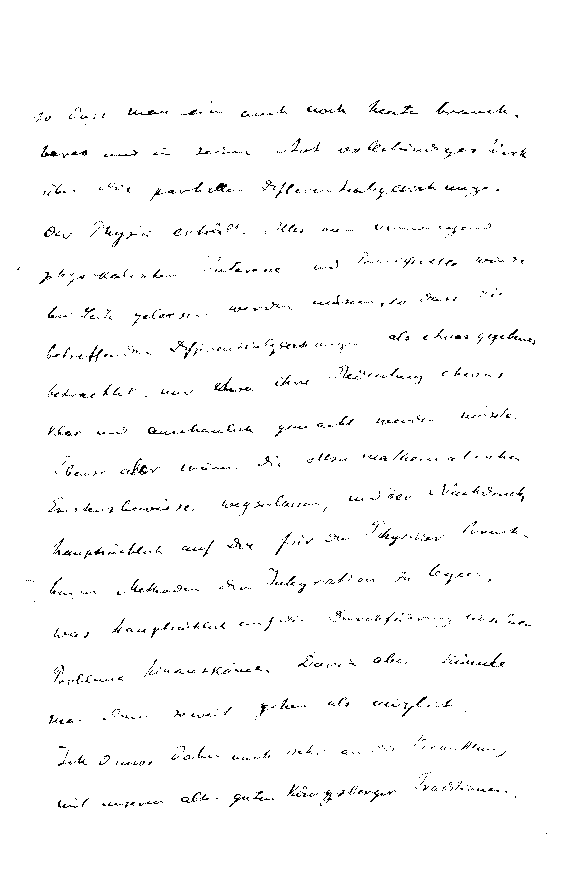 so dass man ein auch noch heute brauch-
bares und in seiner Art vollständiges Werk
über die partiellen Differentialgleichungen
der Physik erhält. Alles nur vorwiegend
physikalischen Interesse und würde
bei Seite gelassen werden müssen, so dass die
betreffenden Differentialgleichungen als etwas gegebenes
betrachtet, nur ihre Bedeutung ebenso
klar und anschaulich gemacht werden müsste.
Ebenso aber wären die mathematischen
Existenzbeweise wegzulassen, und der Nachdruck
hauptsächlich auf die für den Physiker brauch-
baren Methoden der Integration zu legen,
was hauptsächlich auf die Durchführung
Probleme hinauskäme. Darin aber könnte
man dann soweit gehen als möglich.
Ich daher auch sehr an die
mit unseren alten guten Königsberger Traditionen.